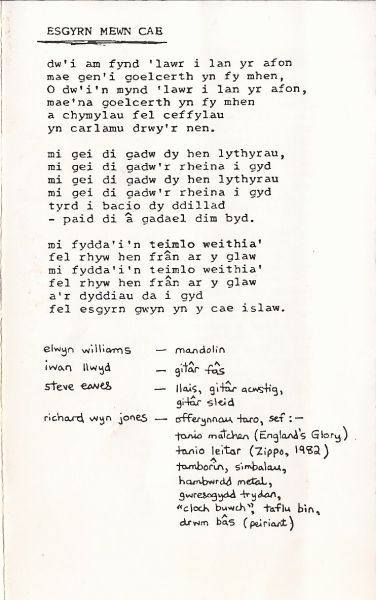 ESGYRN MEWN CAE
dw'i am fynd 'lawr i lan yr afon
mae gen'i goelcerth yn fy mhen,
O dw'i'n mynd 'lawr i lan yr afon,
mae'na goelcerth yn fy mhen
a chymylau fel ceffylau
yn carlamu drwy'r nen.
mi gei di gadw dy hen lythyrau,
mi gei di gadw'r rheina i gyd
mi gei di gadw dy hen lythyrau
mi gei di gadw'r rheina i gyd
tyrd i bacio dy ddillad
- paid di â gadael dim byd.
mi fydda'i'n teimlo weithia'
fel rhyw hen frân ar y glaw
mi fydda'i'n teimlo weithia'
fel rhyw hen frân ar y glaw
a'r dyddiau da i gyd
fel esgyrn gwyn yn y cae islaw.
elwyn williams — mandolin
iwan llwyd — gitâr fâs
steve eaves — llais, gitâr acwstig,
gitâr sleid
richard wyn jones — offerynnau taro, sef :-
tanio matchan (England's Glory)
tanio leitar (Zippo, 1982)
tamborîn, simbalau,
hambwrdd metal,
gwresogydd trydan,
"cloch buwch", taflu bin,
drwm bâs (peiriant)